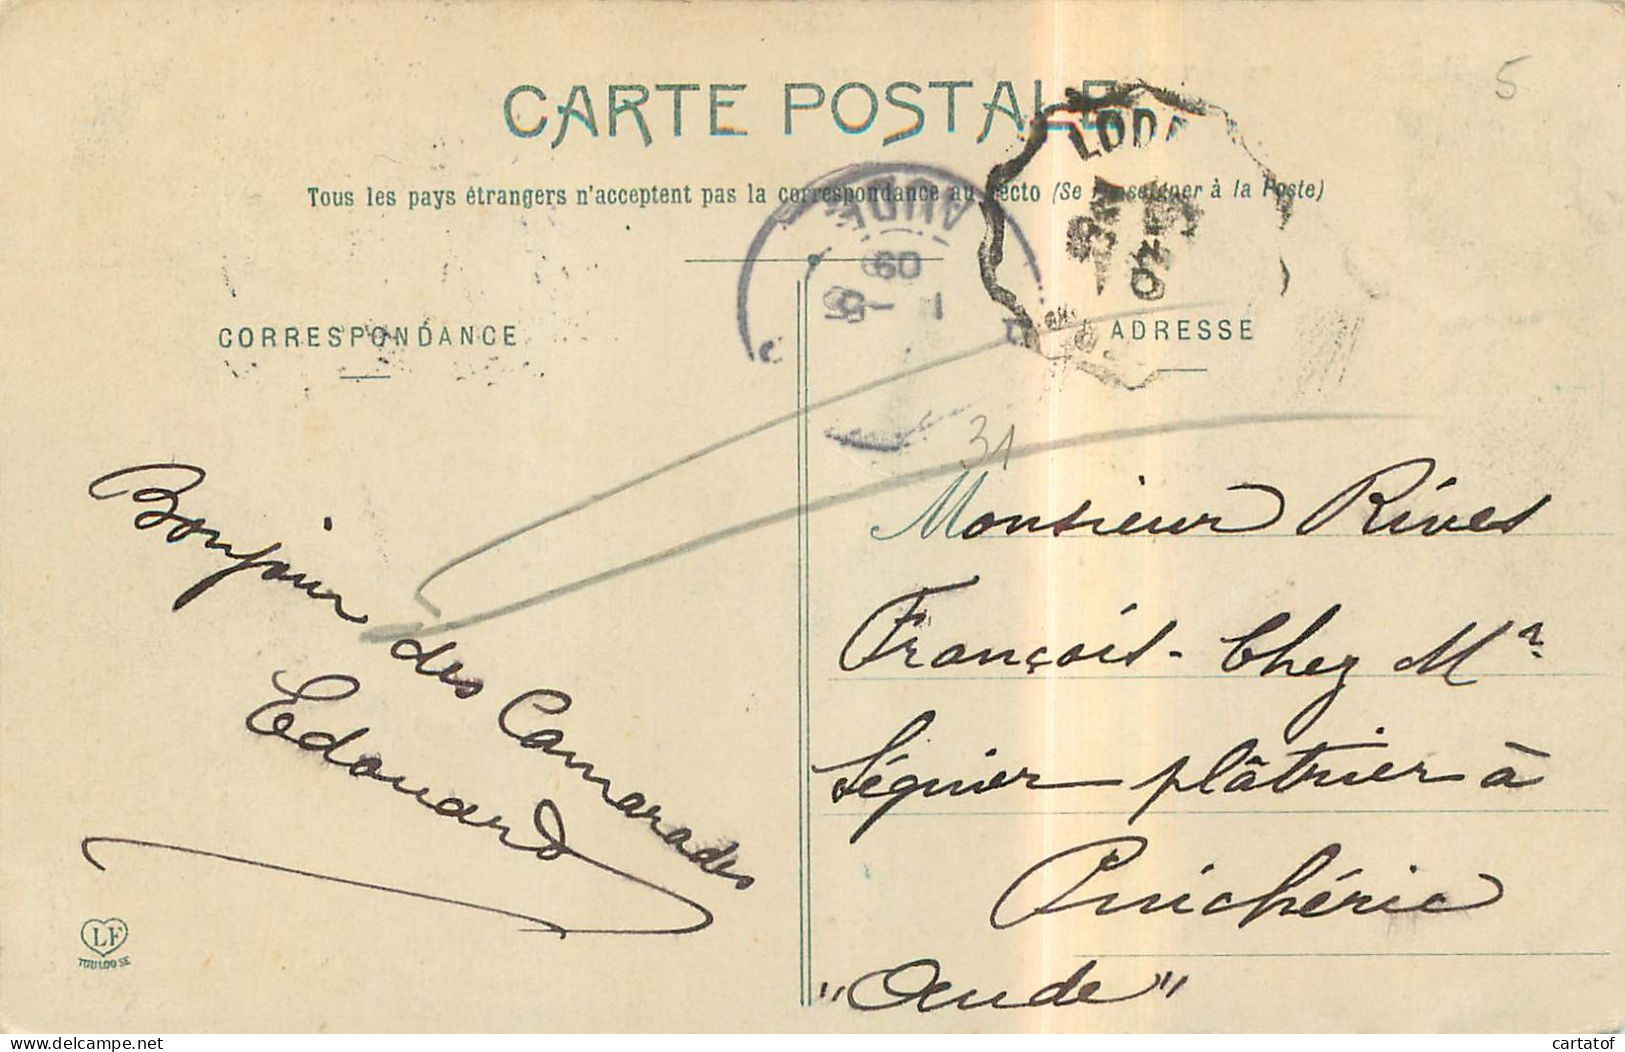 5
CARTE POSTALE
Tous les pays étrangers n'acceptent pas la correspondance au recto (Se renseigner à la Poste)
AUDE
09
CORRESPONDANCE
ADRESSE
31
Bonjour des Camarades
Edouard
Monsieur Rives
François - Chez Mr
Séguier plâtrier à
Puichéric
"Aude"
LF
TOULOUSE
cartatof